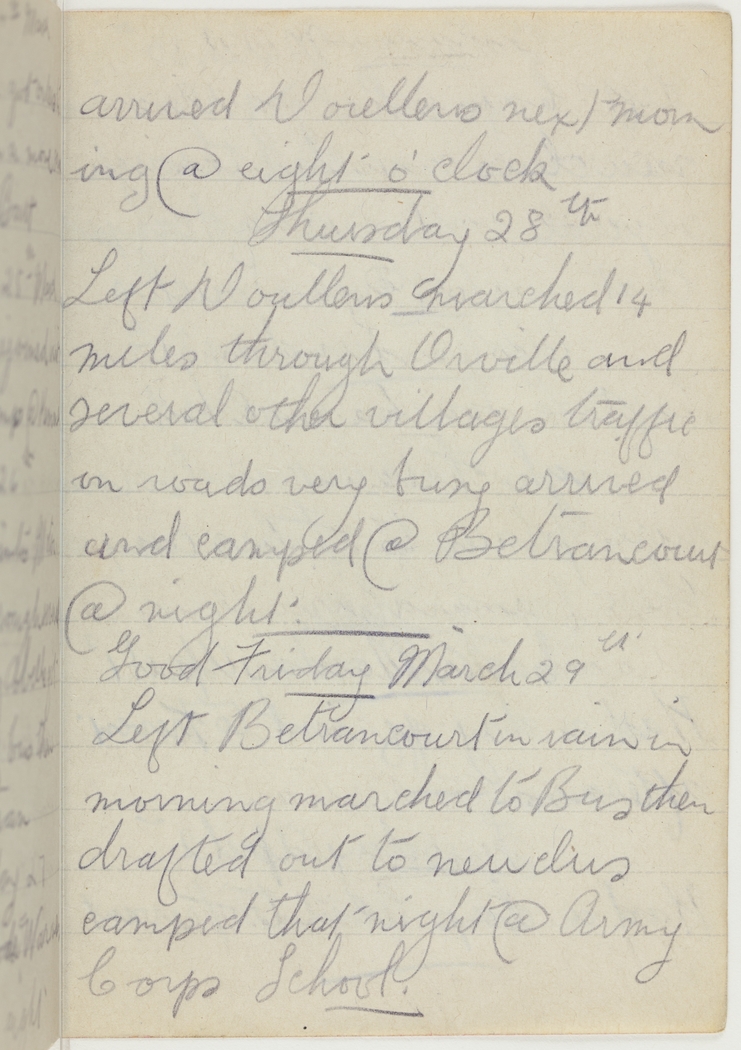 arrived Doullens next morn
ing @ eight o'clock
Thursday 28th
Left Doullens marched 14
miles through Orville and
several other villages traffic
on roads very busy arrived
and camped @ Betrancourt
@ night.
Good Friday March 29th
Left Betrancourt in rain in
morning marched to Bus then
drafted out to new divs
camped that night @ Army
Corps School.